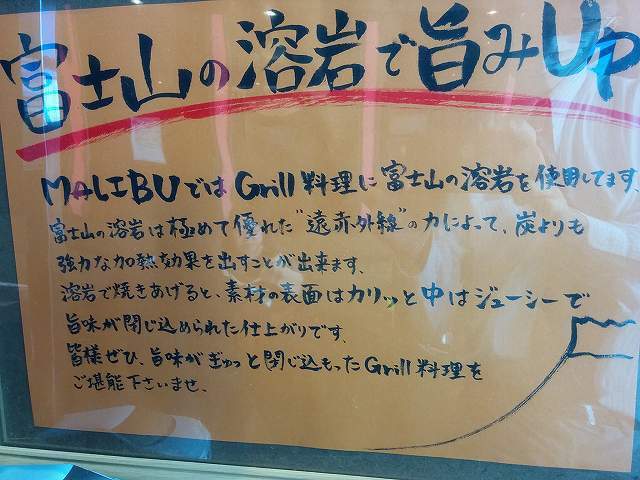 富士山の溶岩で旨みUP
MALIBUではGrill料理に富士山の溶岩を使用してます
富士山の溶岩は極めて優れた"遠赤外線"の力によって、炭よりも
強力な加熱効果を出すことが出来ます.
溶岩で焼きあげると、素材の表面はカリッと中はジューシーで
旨味が閉じ込められた仕上がりです.
皆様ぜひ、旨味がぎゅっと閉じ込もったGrill料理を
ご堪能下さいませ.